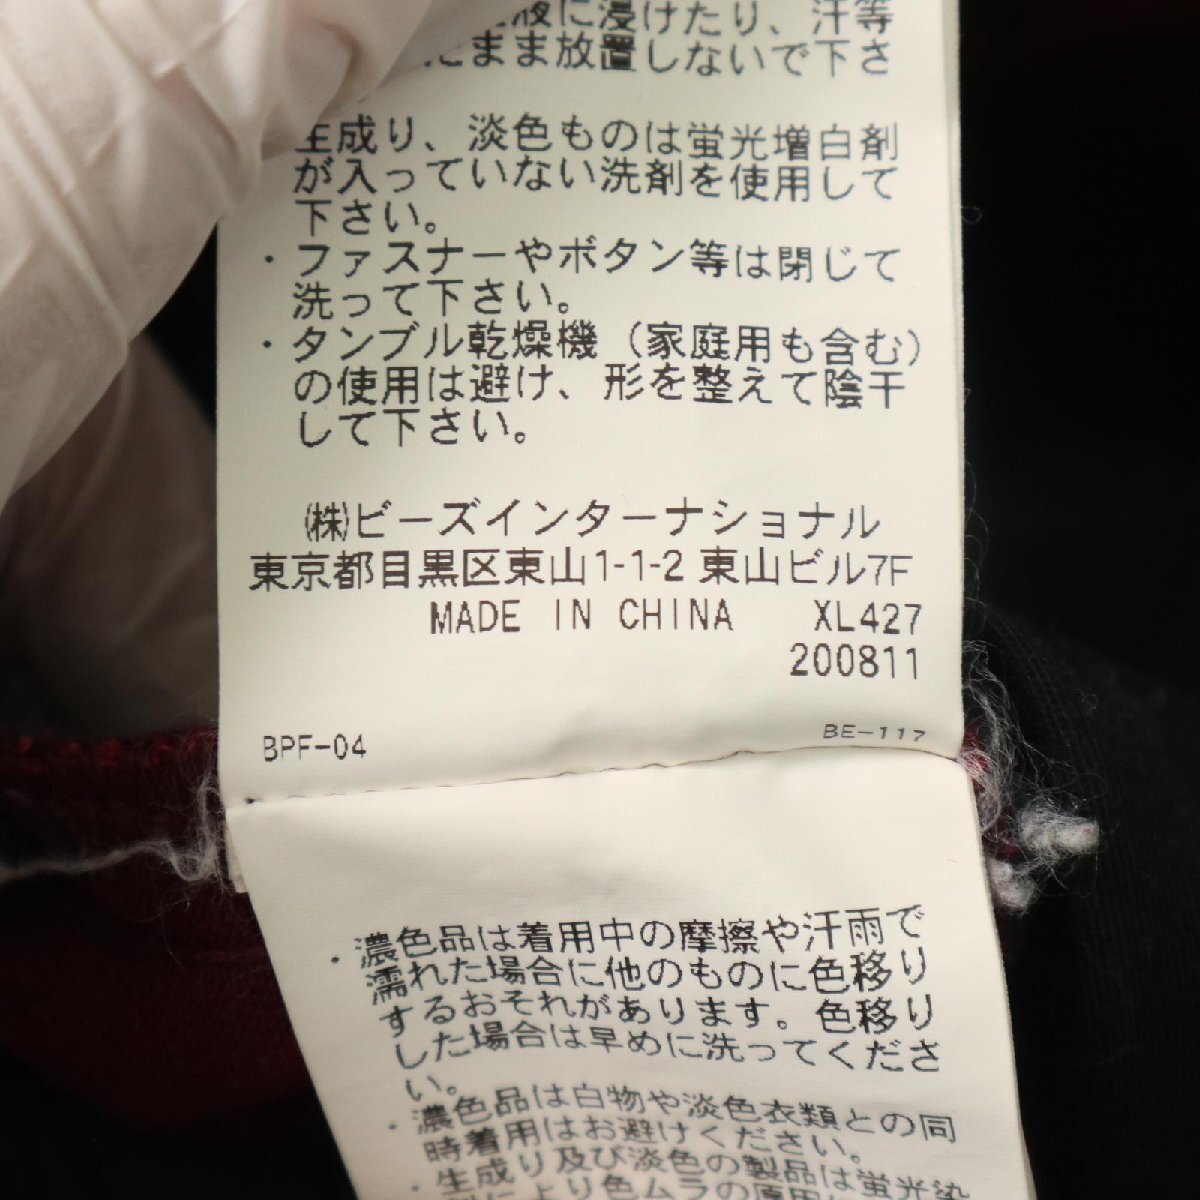 液に浸けたり、汗等
まま放置しないで下さ
生成り、淡色ものは蛍光増白剤
が入っていない洗剤を使用して
下さい。
・ファスナーやボタン等は閉じて
洗って下さい。
・タンブル乾燥機（家庭用も含む）
の使用は避け、形を整えて陰干
して下さい。
㈱ビーズインターナショナル
東京都目黒区東山1-1-2 東山ビル7F
MADE IN CHINA XL427
200811
BPF-04 BE-117
・濃色品は着用中の摩擦や汗雨で
濡れた場合に他のものに色移り
するおそれがあります。色移り
した場合は早めに洗ってくださ
い。
・濃色品は白物や淡色衣類との同
時着用はお避けください。
・生成り及び淡色の製品は蛍光染
により色ムラの原因